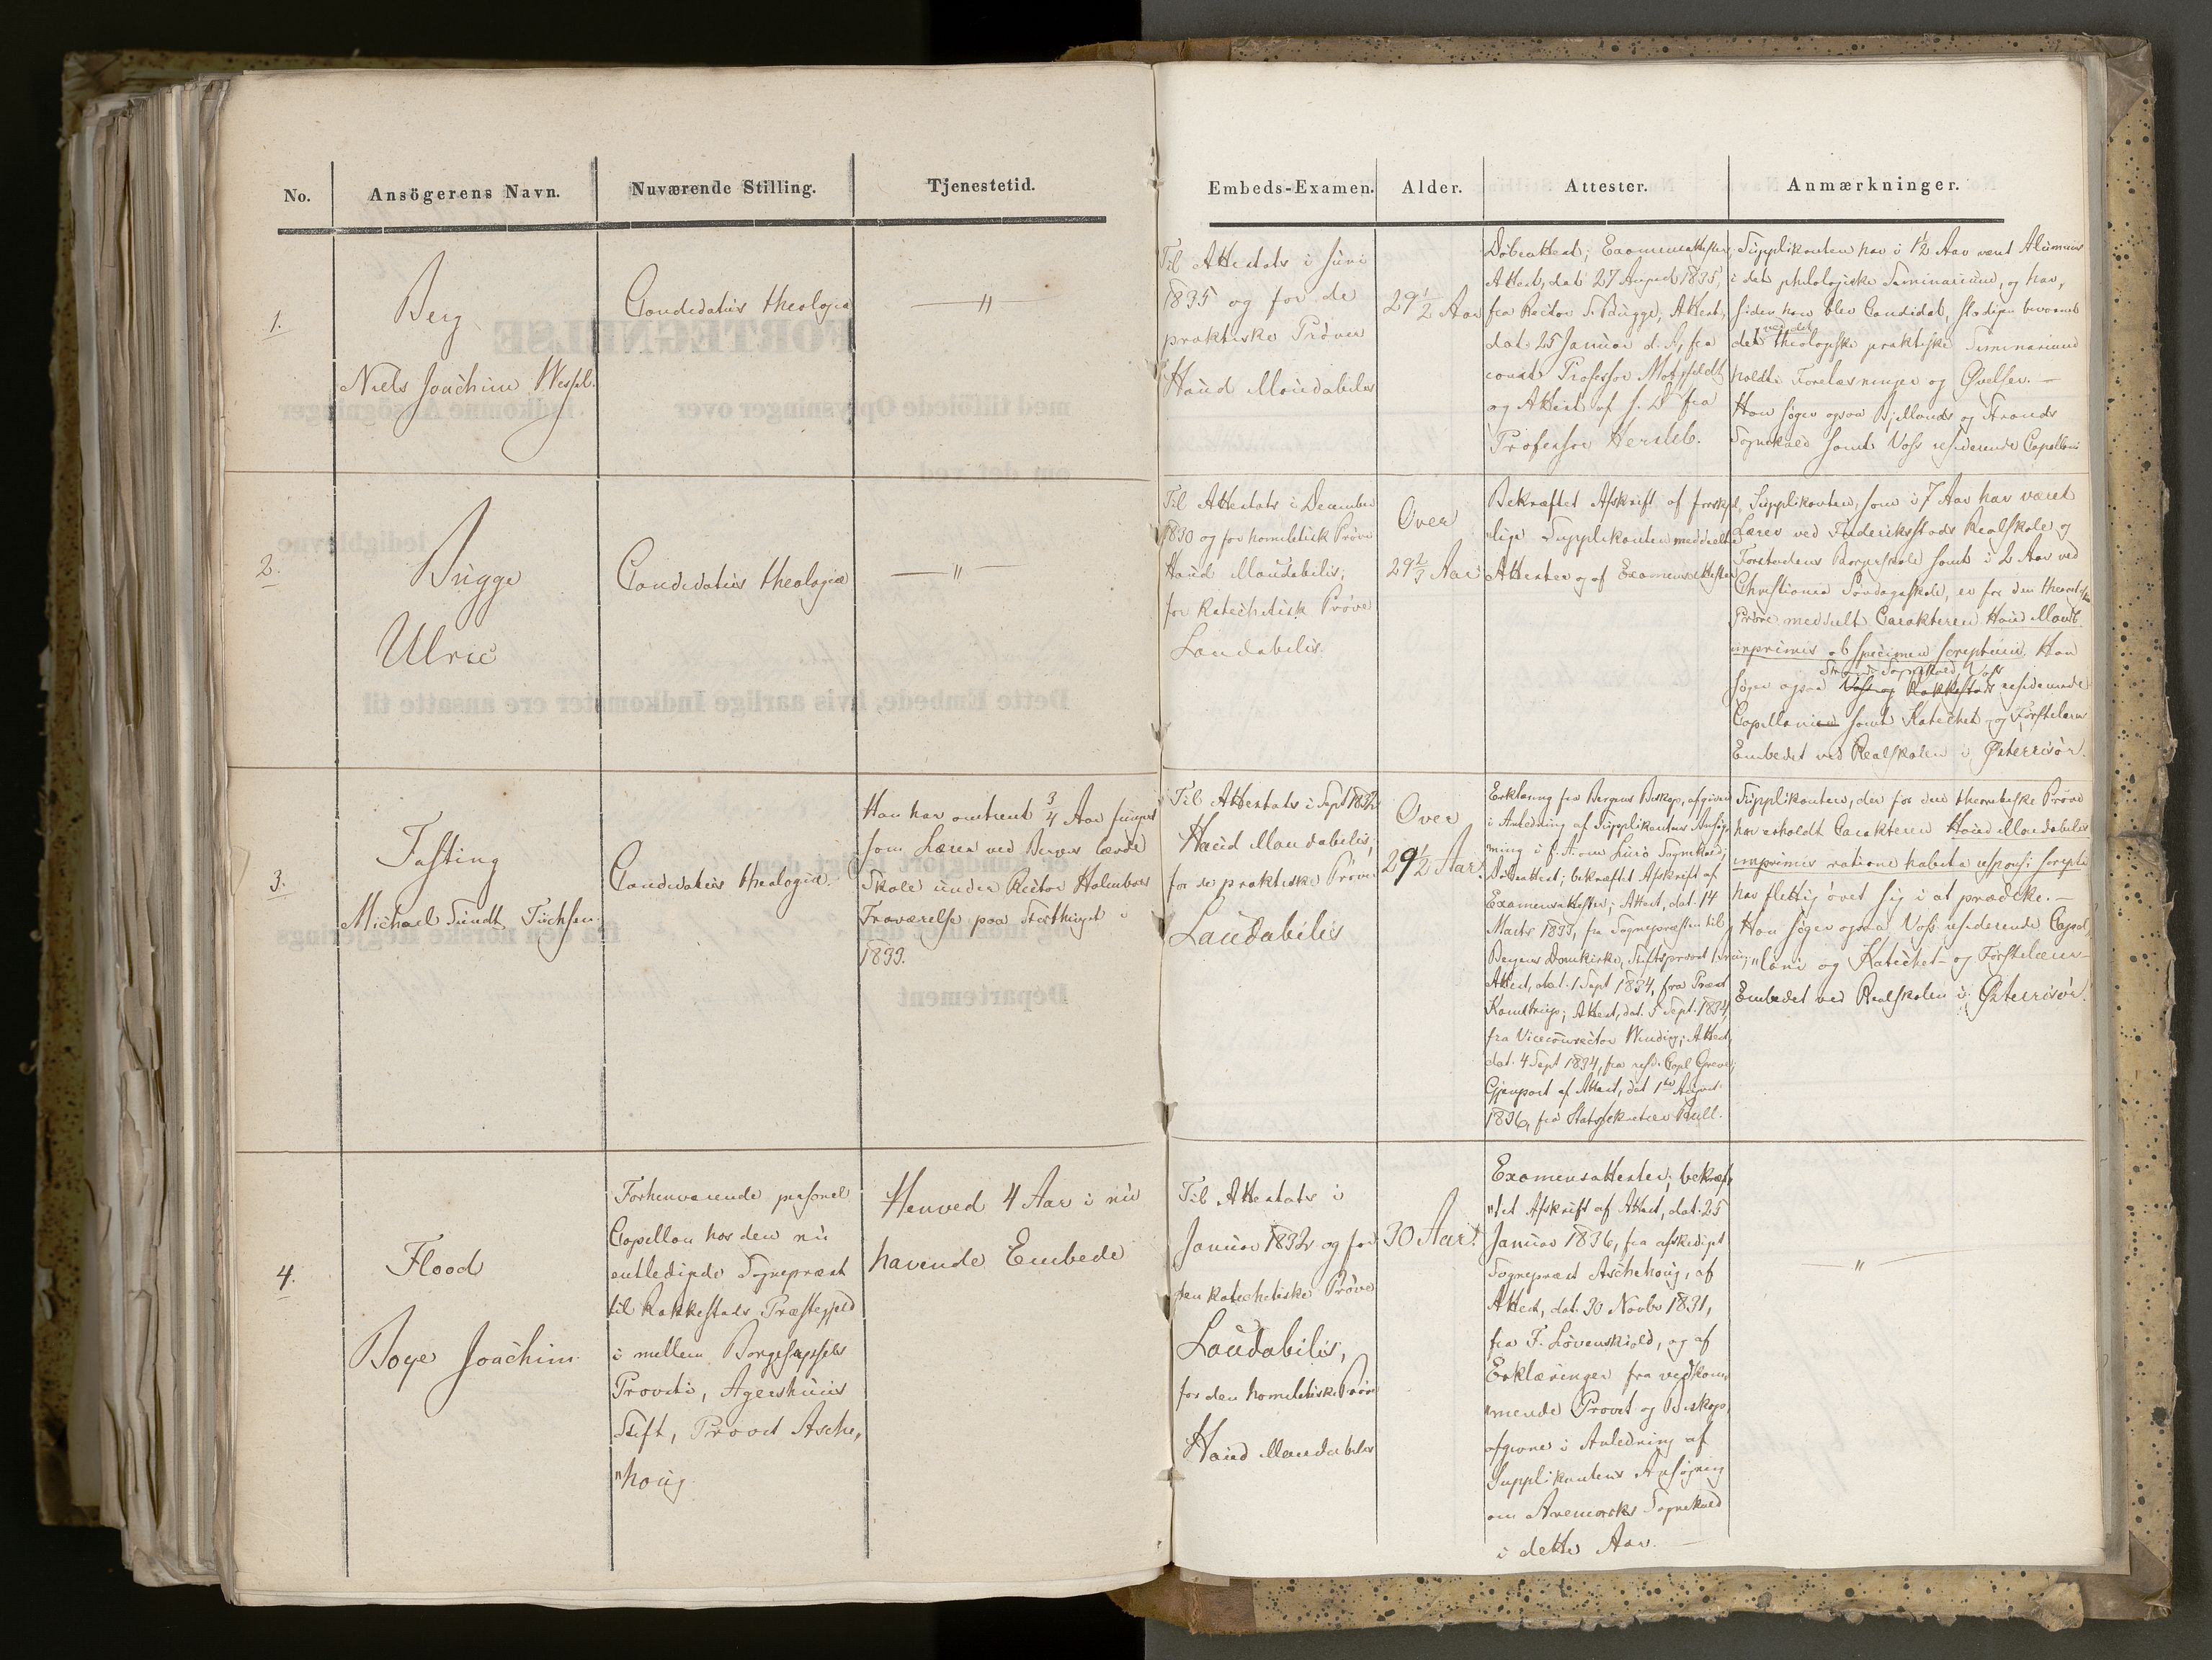 No.
Ansögerens Navn.
Nuværende Stilling.
Tjenestetid.
Embeds-Examen.
Alder.
Attester.
Anmærkninger.
1.
Berg
Niels Joachim Wessel.
Candidatus theologiæ
— " —
Til Attestats i Juni
1835 og for de
praktiske Prøver
Haud illaudabilis
29 1/2 Aar
Døbeattest; Examensattester;
Attest, dat. 27 August 1835,
fra Rector S. Bugge, Attest,
dat. 25 Januar d. A., fra
const. Professor Motzfeldt
og Attest af s. D. fra
Professor Hersleb.
Supplikanten har i 1 1/2 Aar været Alumnus
i det philologiske Seminarium, og har,
siden han blev Candidat, stadigen bivaanet
ved det
det theologiske praktiske Seminarium
holdte Forelæsninger og Øvelser. —
Han søger ogsaa Bjellands og Strands
Sognekald samt Voss residerende Capellani
2.
Bugge
Ulric
Candidatus theologiæ
— " —
Til Attestats i December
1830 og for homiletisk Prøve
Haud illaudabilis;
for katechetisk Prøve
Laudabilis.
Over
29 2/3 Aar
Bekræftet Afskrift af forskjel,
"lige Supplikanten meddeelte
Attester og af Examensattester
Supplikanten, som i 7 Aar har været
Lærer ved Frederiksstads Realskole og
Forstadens Borgerskole samt i 2 Aar ved
Christiania Søndagsskole, er for den theoretiske
Prøve meddeelt Carakteren Haud illaud.
imprimis ob specimen scriptum. Han
Strands Sognekald, Voss
søger ogsaa Voss og Rakkestads residerende
Capellanier samt Katechet- og Førstelærer
Embedet ved Realskolen i Østerrisør.
3.
Fasting
Michael Sundt Tuchsen.
Candidatus theologiæ.
Han har omtrent 3/4 Aar fungeret
som Lærer ved Bergens lærde
Skole under Rector Holmboes
Fraværelse paa Storthinget i
1833.
Til Attestats i Sept 1832
Haud illaudabilis;
for de praktiske Prøver
Laudabilis
Over
29 1/2 Aar.
Erklæring fra Bergens Biskop, afgiven
i Anledning af Supplikantens Ansøg,
ning i f. A. om Lurø Sognekald;
Døbeattest; bekræftet Afskrift af
Examensattester; Attest, dat. 14
Marts 1833, fra Sognepræsten til
Bergens Domkirke, Stiftsprovst
Attest, dat. 1 Sept 1834, fra Præst
Kamstrup; Attest, dat. 5 Sept. 1834
fra Viceconrector Winding; Attest,
dat. 4 Sept 1834, fra resid. Capl Greve;
Gjenpart af Attest, dat 1ste August
1836, fra Statssekretær Bull.
Supplikanten, der for den theoretiske Prøve
har erholdt Carakteren Haud illaudabilis
imprimis ratione habita respons. script.
har flittig øvet sig i at prædike. —
Han søger ogsaa Voss residerende Capel,
"lani og Katechet- og Førstelærer-
Embedet ved Realskolen i Østerrisør.
4.
Flood
Boye Joachim
Forhenværende personel
Capellan hos den nu
entledigede Sognepræst
til Rakkestads Præstegjeld
i mellem Borgesyssels
Provsti, Agershuus
Stift, Provst Asche,
"houg.
Henved 4 Aar i nu
havende Embede
Til Attestats i
Januar 1832 og for
den katechetiske Prøve
Laudabilis,
for den homiletiske Prøve
Haud illaudabilis
30 Aar.
Examensattester; bekræf,
"tet Afskrift af Attest, dat. 25
Januar 1836, fra afskediget
Sognepræst Aschehoug, af
Attest, dat. 30 Novbr 1831,
fra F. Løvenskiold, og af
Erklæringer fra vedkom,
"mende Provst og Biskop,
afgivne i Anledning af
Supplikantens Ansøgning
om Aremarks Sognekald
i dette Aar. —
— " —